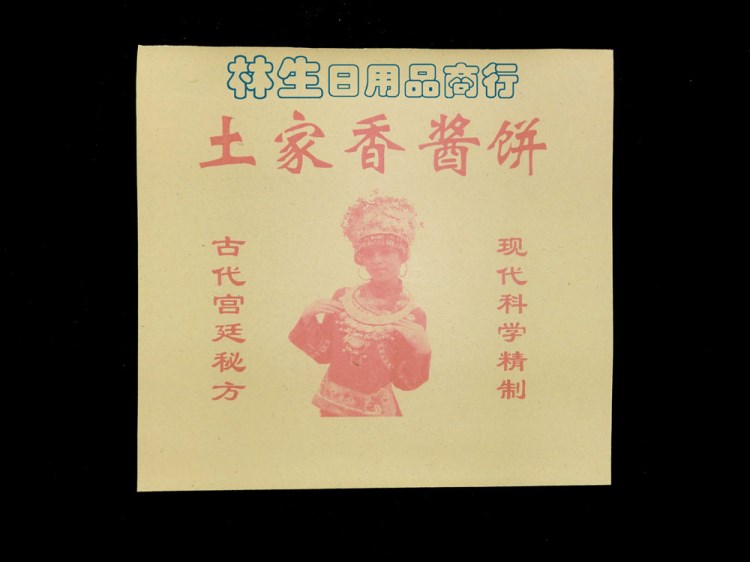 林生日用品商行
土家香酱饼
古代宫廷秘方
现代科学精制